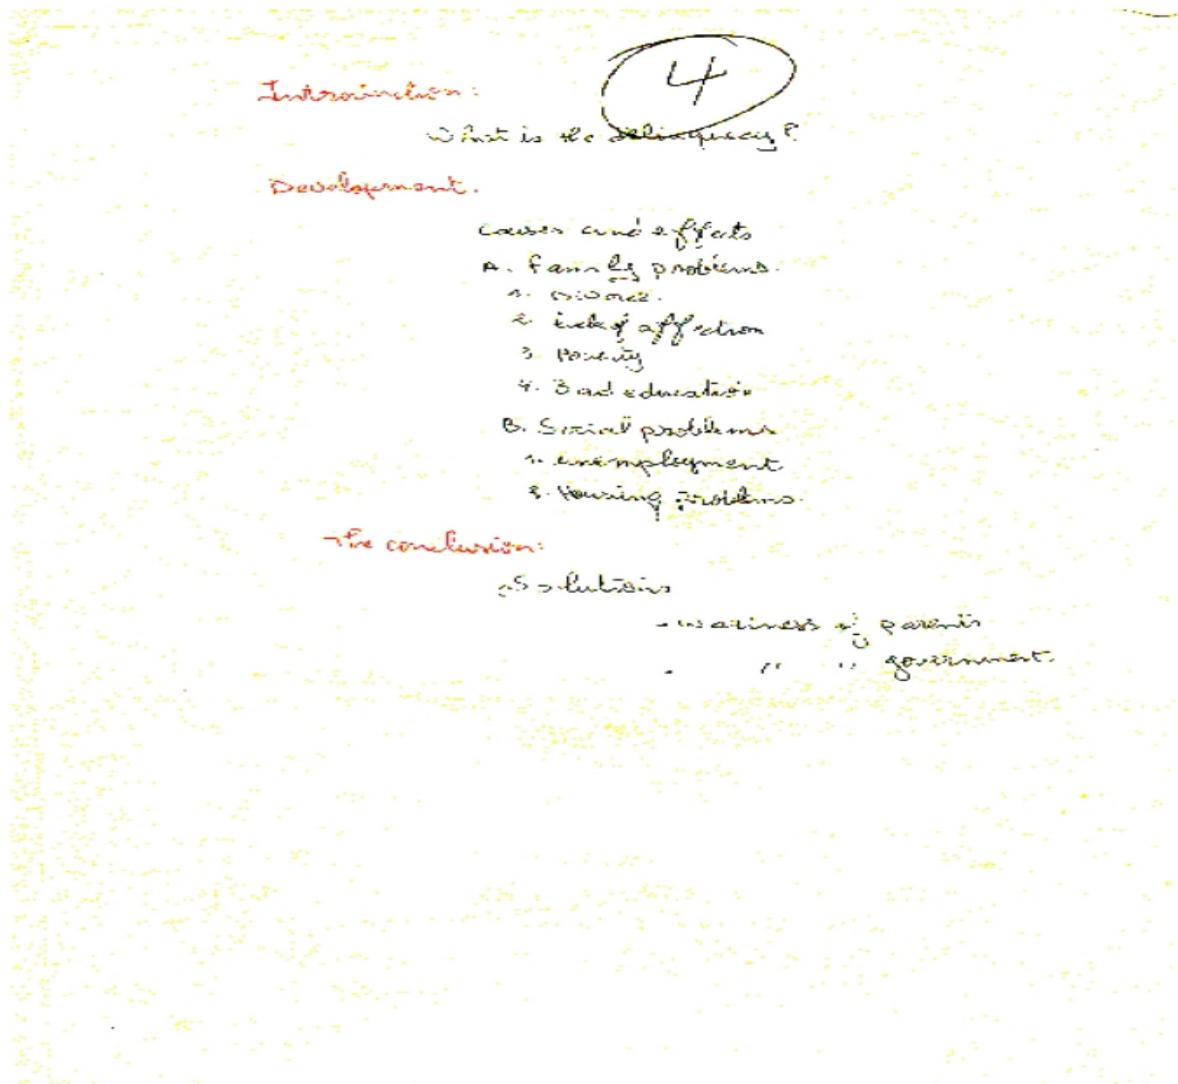 4
Introduction:
What is the delinquency?
Development.
causes and effects
A. family problems.
1. Divorce.
2. Lack of affection
3. Poverty
4. Bad education
B. Social problems
1. unemployment
2. Housing problems.
The conclusion:
Solutions
- wariness of parents
- " " government.